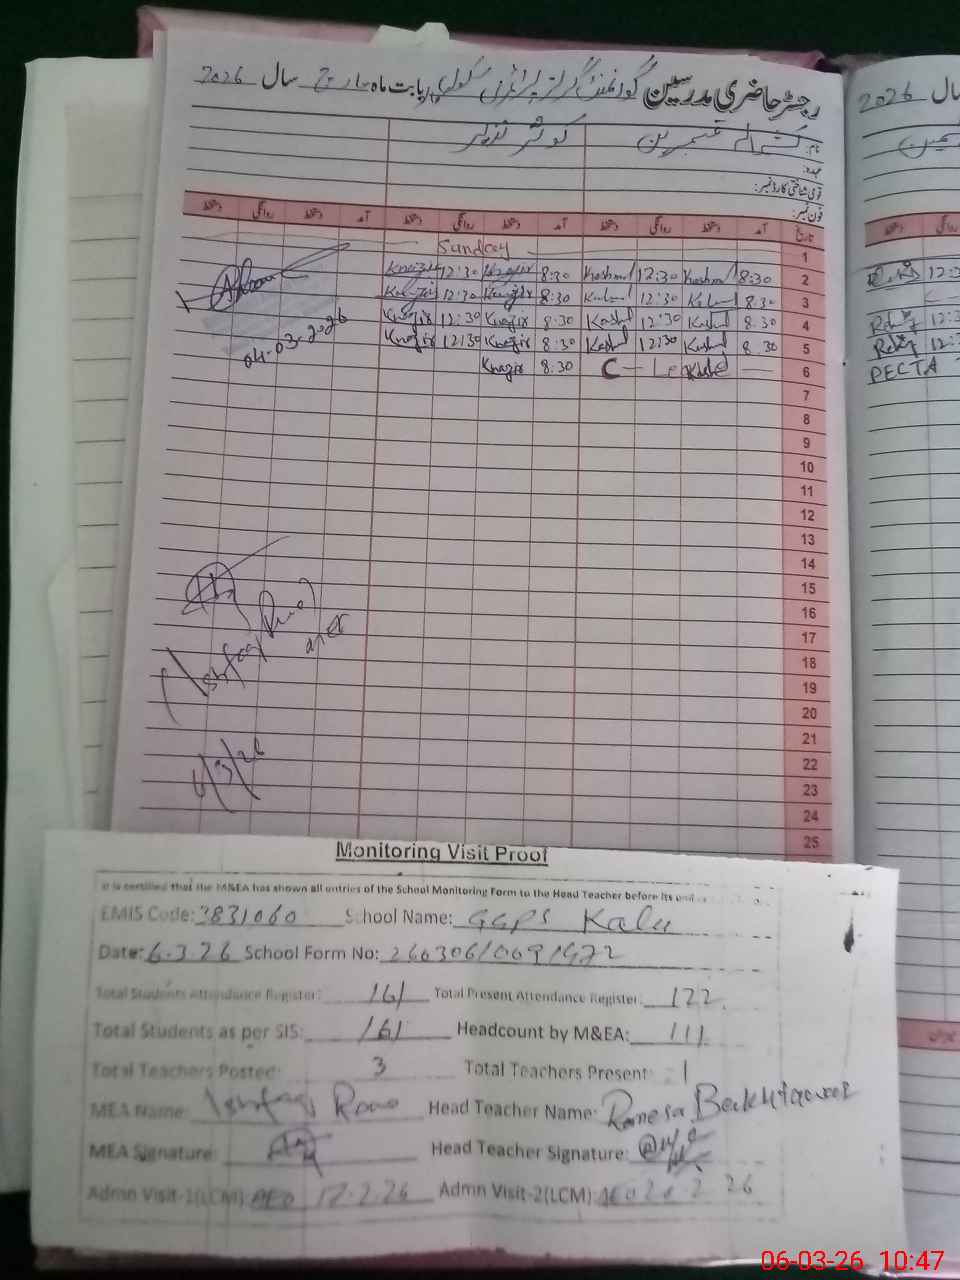 رجسٹر حاضری مدرسین گورنمنٹ گرلز پرائمری سکول بابت ماہ مارچ سال 2026
2026 سال
نام: کوثر
عہدہ:
قومی شناختی کارڈ نمبر:
فون نمبر:
تاریخ آمد دستخط روانگی دستخط آمد دستخط روانگی دستخط آمد دستخط روانگی دستخط
1 Sunday
2 8:30 12:30 8:30 12:30
3 8:30 12:30 8:30 12:30
4 8.30 12:30 8:30 12:30
5 8.30 12:30 8:30 12:30
6 C — Leave — 8:30
PECTA
04-03-2026
7
8
9
10
11
12
13
14
15
16
17
18
19
20
21
22
23
24
25
Ishfaq Rao
6/3/26
Monitoring Visit Proof
It is certified that the M&EA has shown all entries of the School Monitoring Form to the Head Teacher before its
EMIS Code: 3831060 School Name: GGPS Kalu
Date: 6.3.26 School Form No: 260306/0691472
Total Students Attendance Register: 161 Total Present Attendance Register: 122
Total Students as per SIS: 161 Headcount by M&EA: 111
Total Teachers Posted: 3 Total Teachers Present: 1
MEA Name: Ishfaq Rao Head Teacher Name:
MEA Signature: Head Teacher Signature:
Admn Visit-1(LCM): AEO 17.2.26 Admn Visit-2(LCM): AEO 2.26
06-03-26 10:47